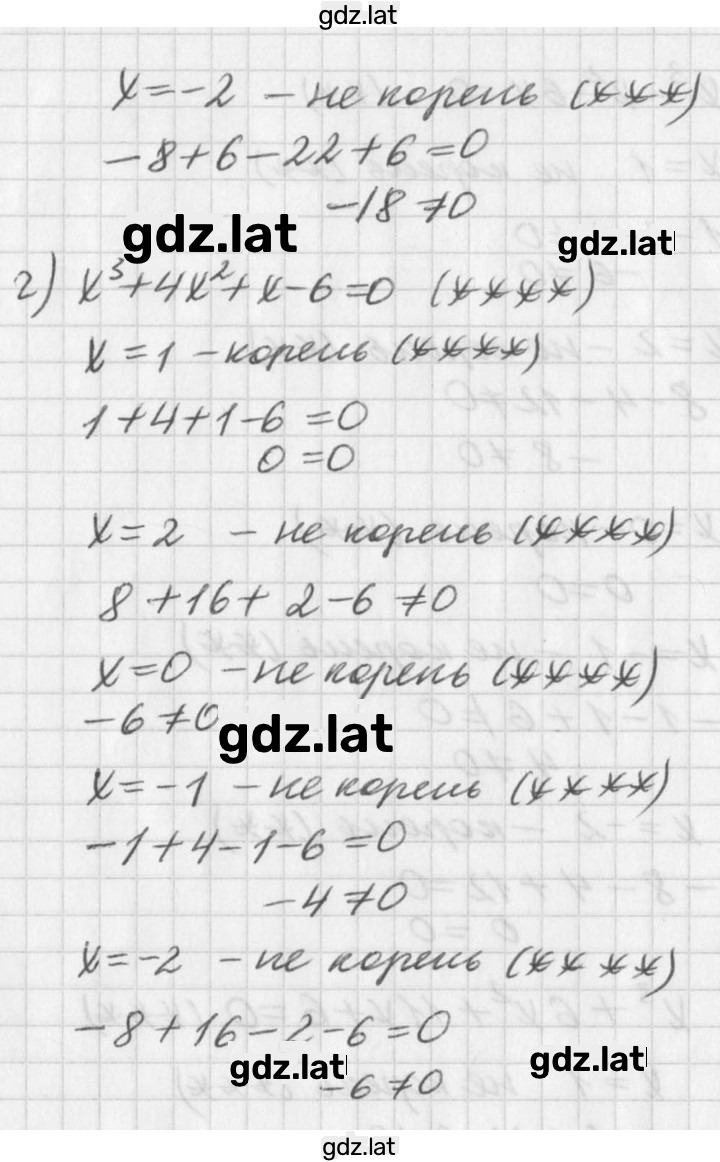 gdz.lat
x=-2 - не корень (***)
-8+6-22+6=0
-18≠0
gdz.lat
gdz.lat
г) x³+4x²+x-6=0 (****)
x=1 - корень (****)
1+4+1-6=0
0=0
x=2 - не корень (****)
8+16+2-6≠0
x=0 - не корень (****)
-6≠0
gdz.lat
x=-1 - не корень (****)
-1+4-1-6=0
-4≠0
x=-2 - не корень (****)
-8+16-2-6=0
gdz.lat
gdz.lat
-6≠0
gdz.lat